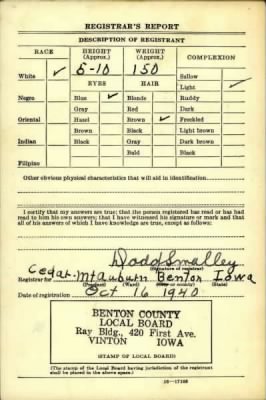 REGISTRAR'S REPORT
DESCRIPTION OF REGISTRANT
RACE HEIGHT (Approx.) WEIGHT (Approx.) COMPLEXION
White ✓ 5-10 150 Sallow
EYES HAIR Light ✓
Negro Blue ✓ Blonde Ruddy
Gray Red Dark
Oriental Hazel Brown ✓ Freckled
Brown Black Light brown
Indian Black Gray Dark brown
Bald Black
Filipino
Other obvious physical characteristics that will aid in identification
I certify that my answers are true; that the person registered has read or has had
read to him his own answers; that I have witnessed his signature or mark and that
all of his answers of which I have knowledge are true, except as follows:
Dodd Smalley
(Signature of registrar)
Registrar for Cedar-Mt Auburn Benton Iowa
(Precinct) (Ward) (City or county) (State)
Date of registration Oct 16 1940
BENTON COUNTY
LOCAL BOARD
Ray Bldg., 420 First Ave.
VINTON IOWA
(STAMP OF LOCAL BOARD)
(The stamp of the Local Board having jurisdiction of the registrant
shall be placed in the above space.)